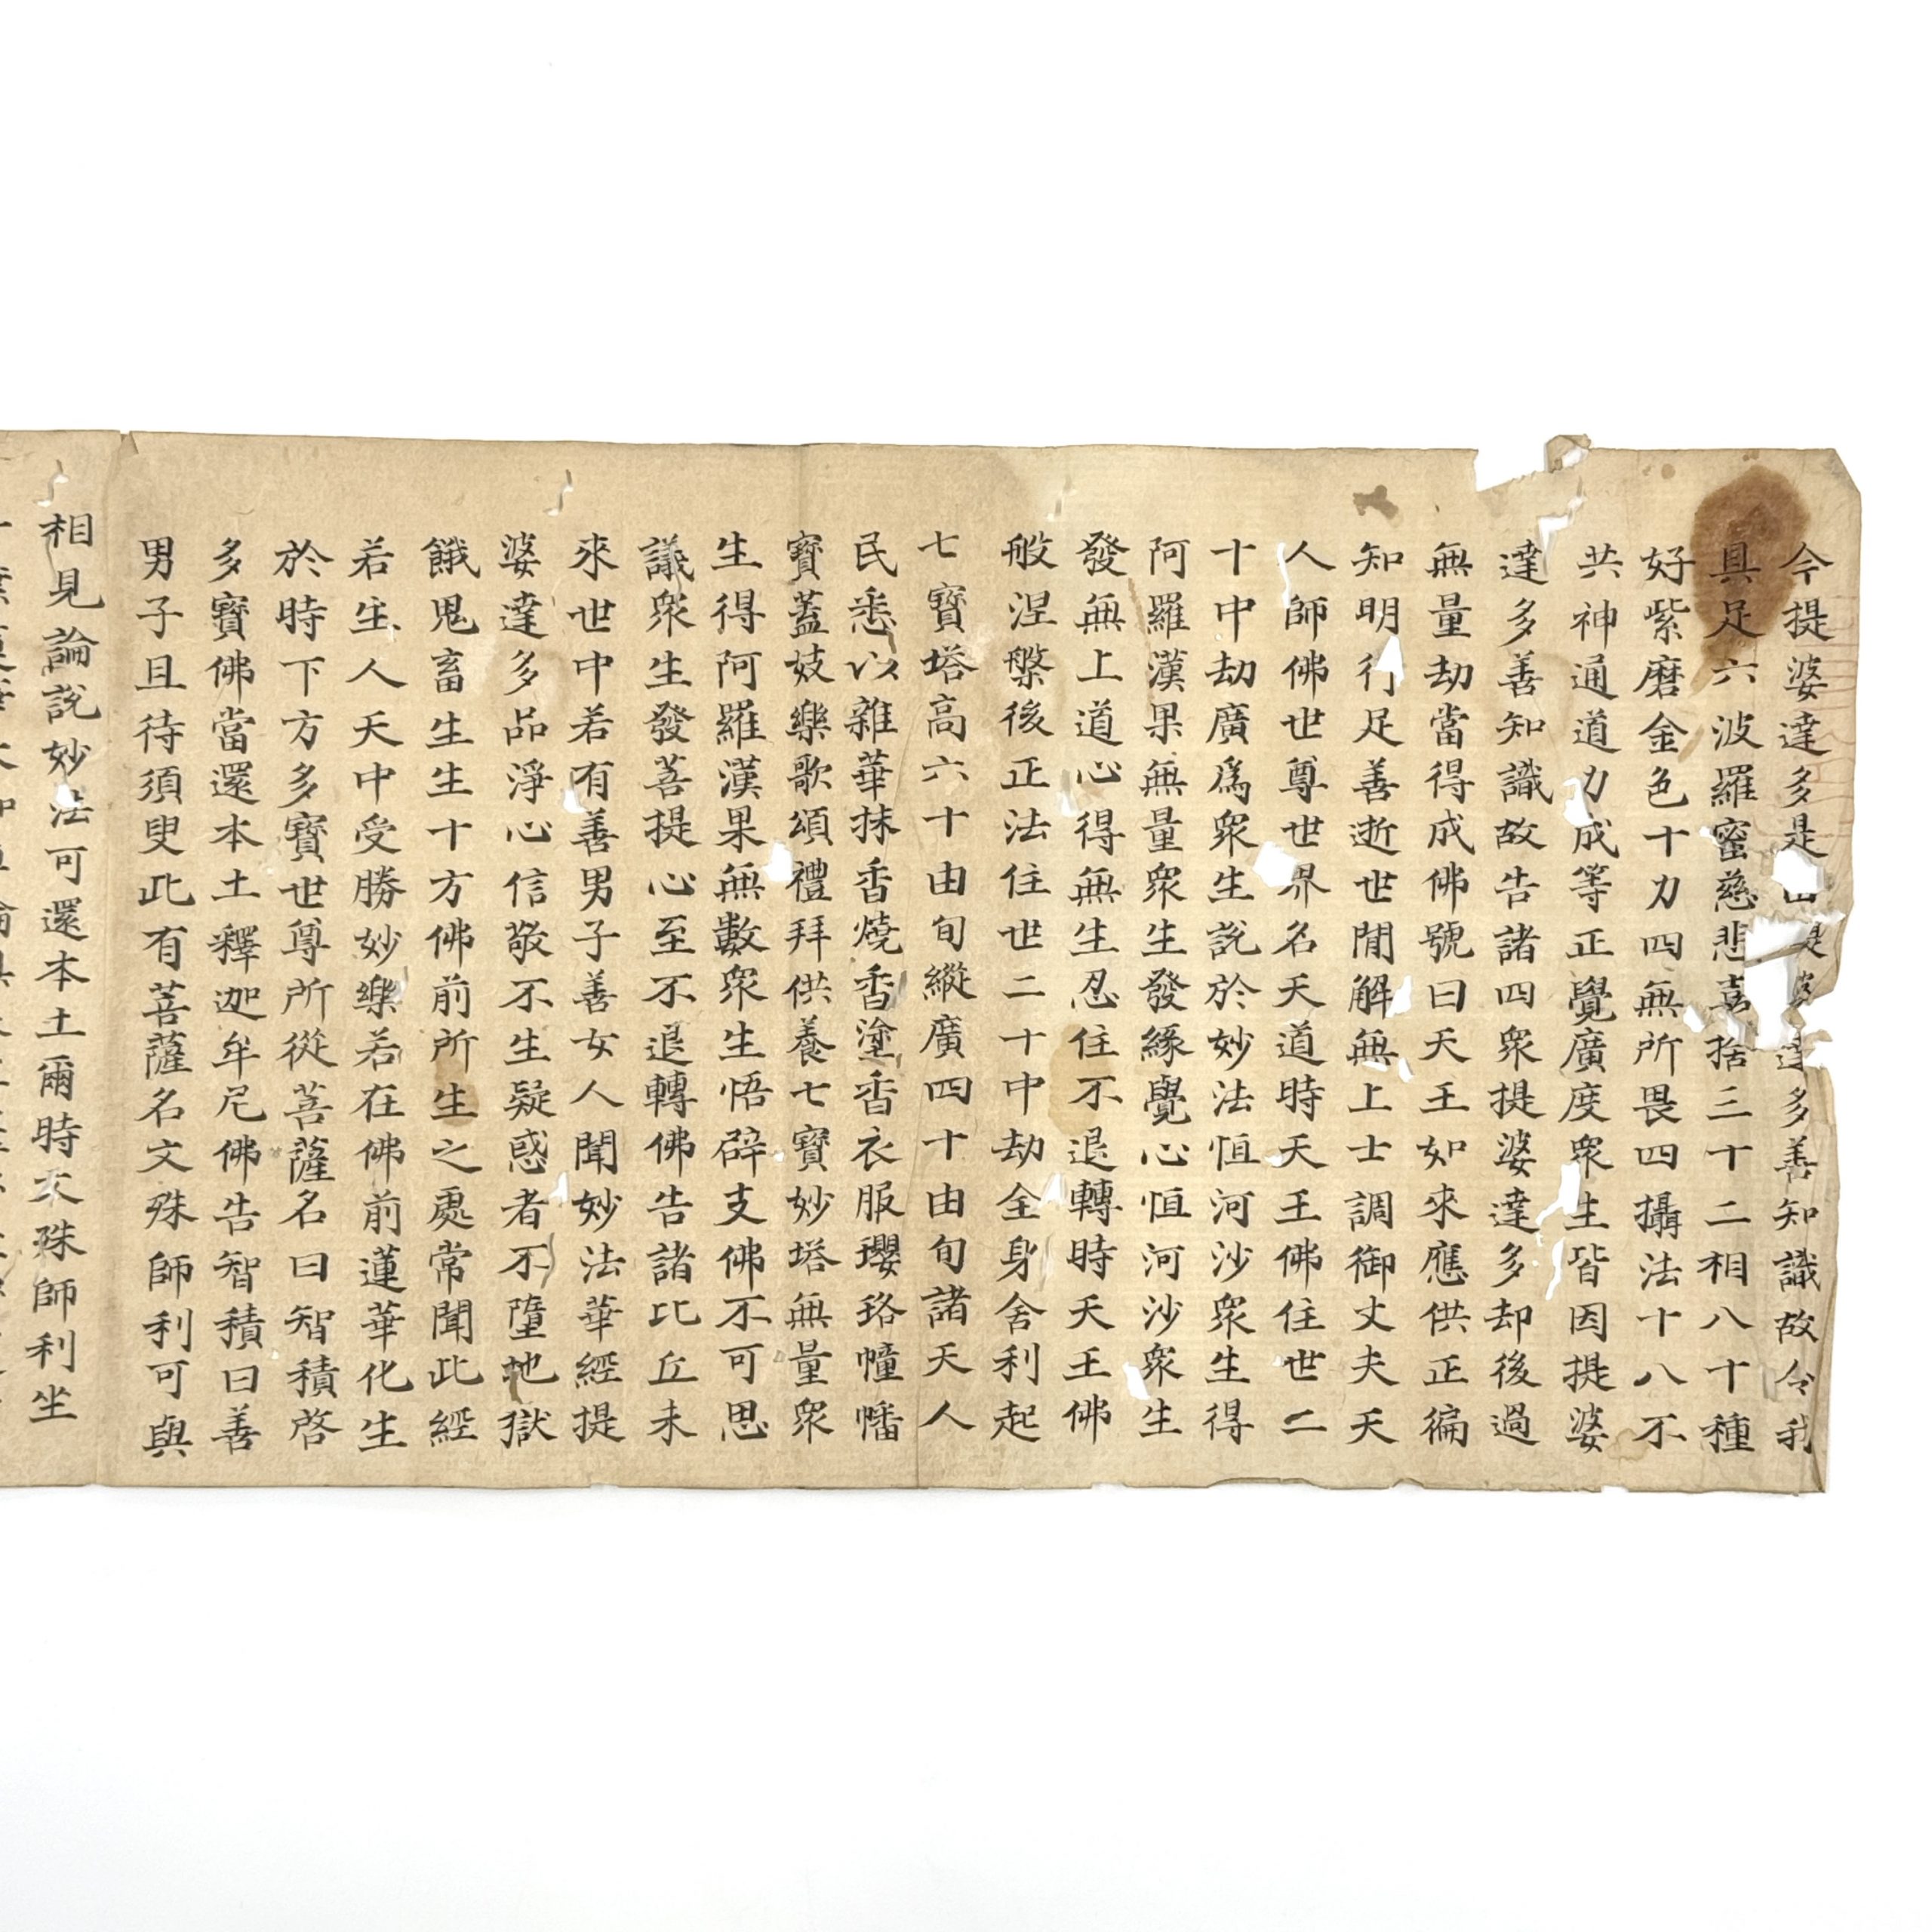 今提婆達多是由提婆達多善知識故令我
具足六波羅蜜慈悲喜捨三十二相八十種
好紫磨金色十力四無所畏四攝法十八不
共神通道力成等正覺廣度眾生皆因提婆
達多善知識故告諸四眾提婆達多却後過
無量劫當得成佛號曰天王如來應供正徧
知明行足善逝世間解無上士調御丈夫天
人師佛世尊世界名天道時天王佛住世二
十中劫廣為眾生說於妙法恒河沙眾生得
阿羅漢果無量眾生發緣覺心恒河沙眾生
發無上道心得無生忍住不退轉時天王佛
般涅槃後正法住世二十中劫全身舍利起
七寶塔高六十由旬縱廣四十由旬諸天人
民悉以雜華抹香燒香塗香衣服瓔珞幢幡
寶蓋妓樂歌頌禮拜供養七寶妙塔無量眾
生得阿羅漢果無數眾生悟辟支佛不可思
議眾生發菩提心至不退轉佛告諸比丘未
來世中若有善男子善女人聞妙法華經提
婆達多品淨心信敬不生疑惑者不墮地獄
餓鬼畜生生十方佛前所生之處常聞此經
若生人天中受勝妙樂若在佛前蓮華化生
於時下方多寶世尊所從菩薩名曰智積啓
多寶佛當還本土釋迦牟尼佛告智積曰善
男子且待須臾此有菩薩名文殊師利可與
相見論說妙法可還本土爾時文殊師利坐